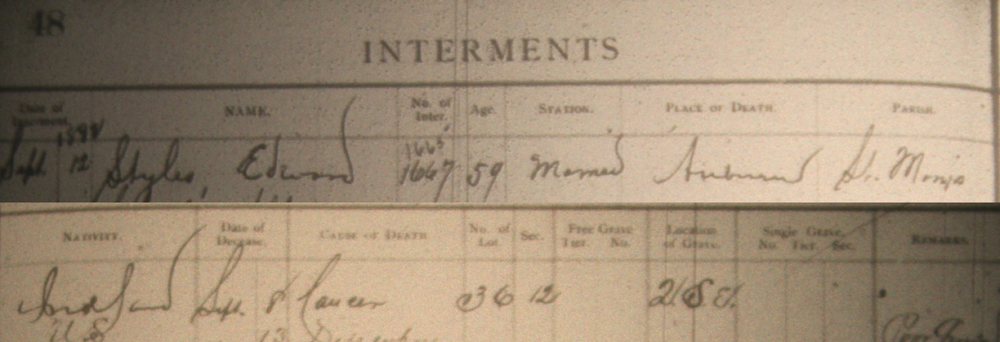 48
INTERMENTS
Date of Interment. NAME. No. of Inter. Age. STATION. PLACE OF DEATH. PARISH.
1898 1665
Sept. 12 Styles, Edward 1667 59 Married Auburn St. Mary's
NATIVITY. Date of Decease. CAUSE OF DEATH No. of Lot. Sec. Free Grave Tier. No. Location of Grave. Single Grave. No. Tier. Sec. REMARKS.
Sept. 8 Cancer 36 12
U.S. 13